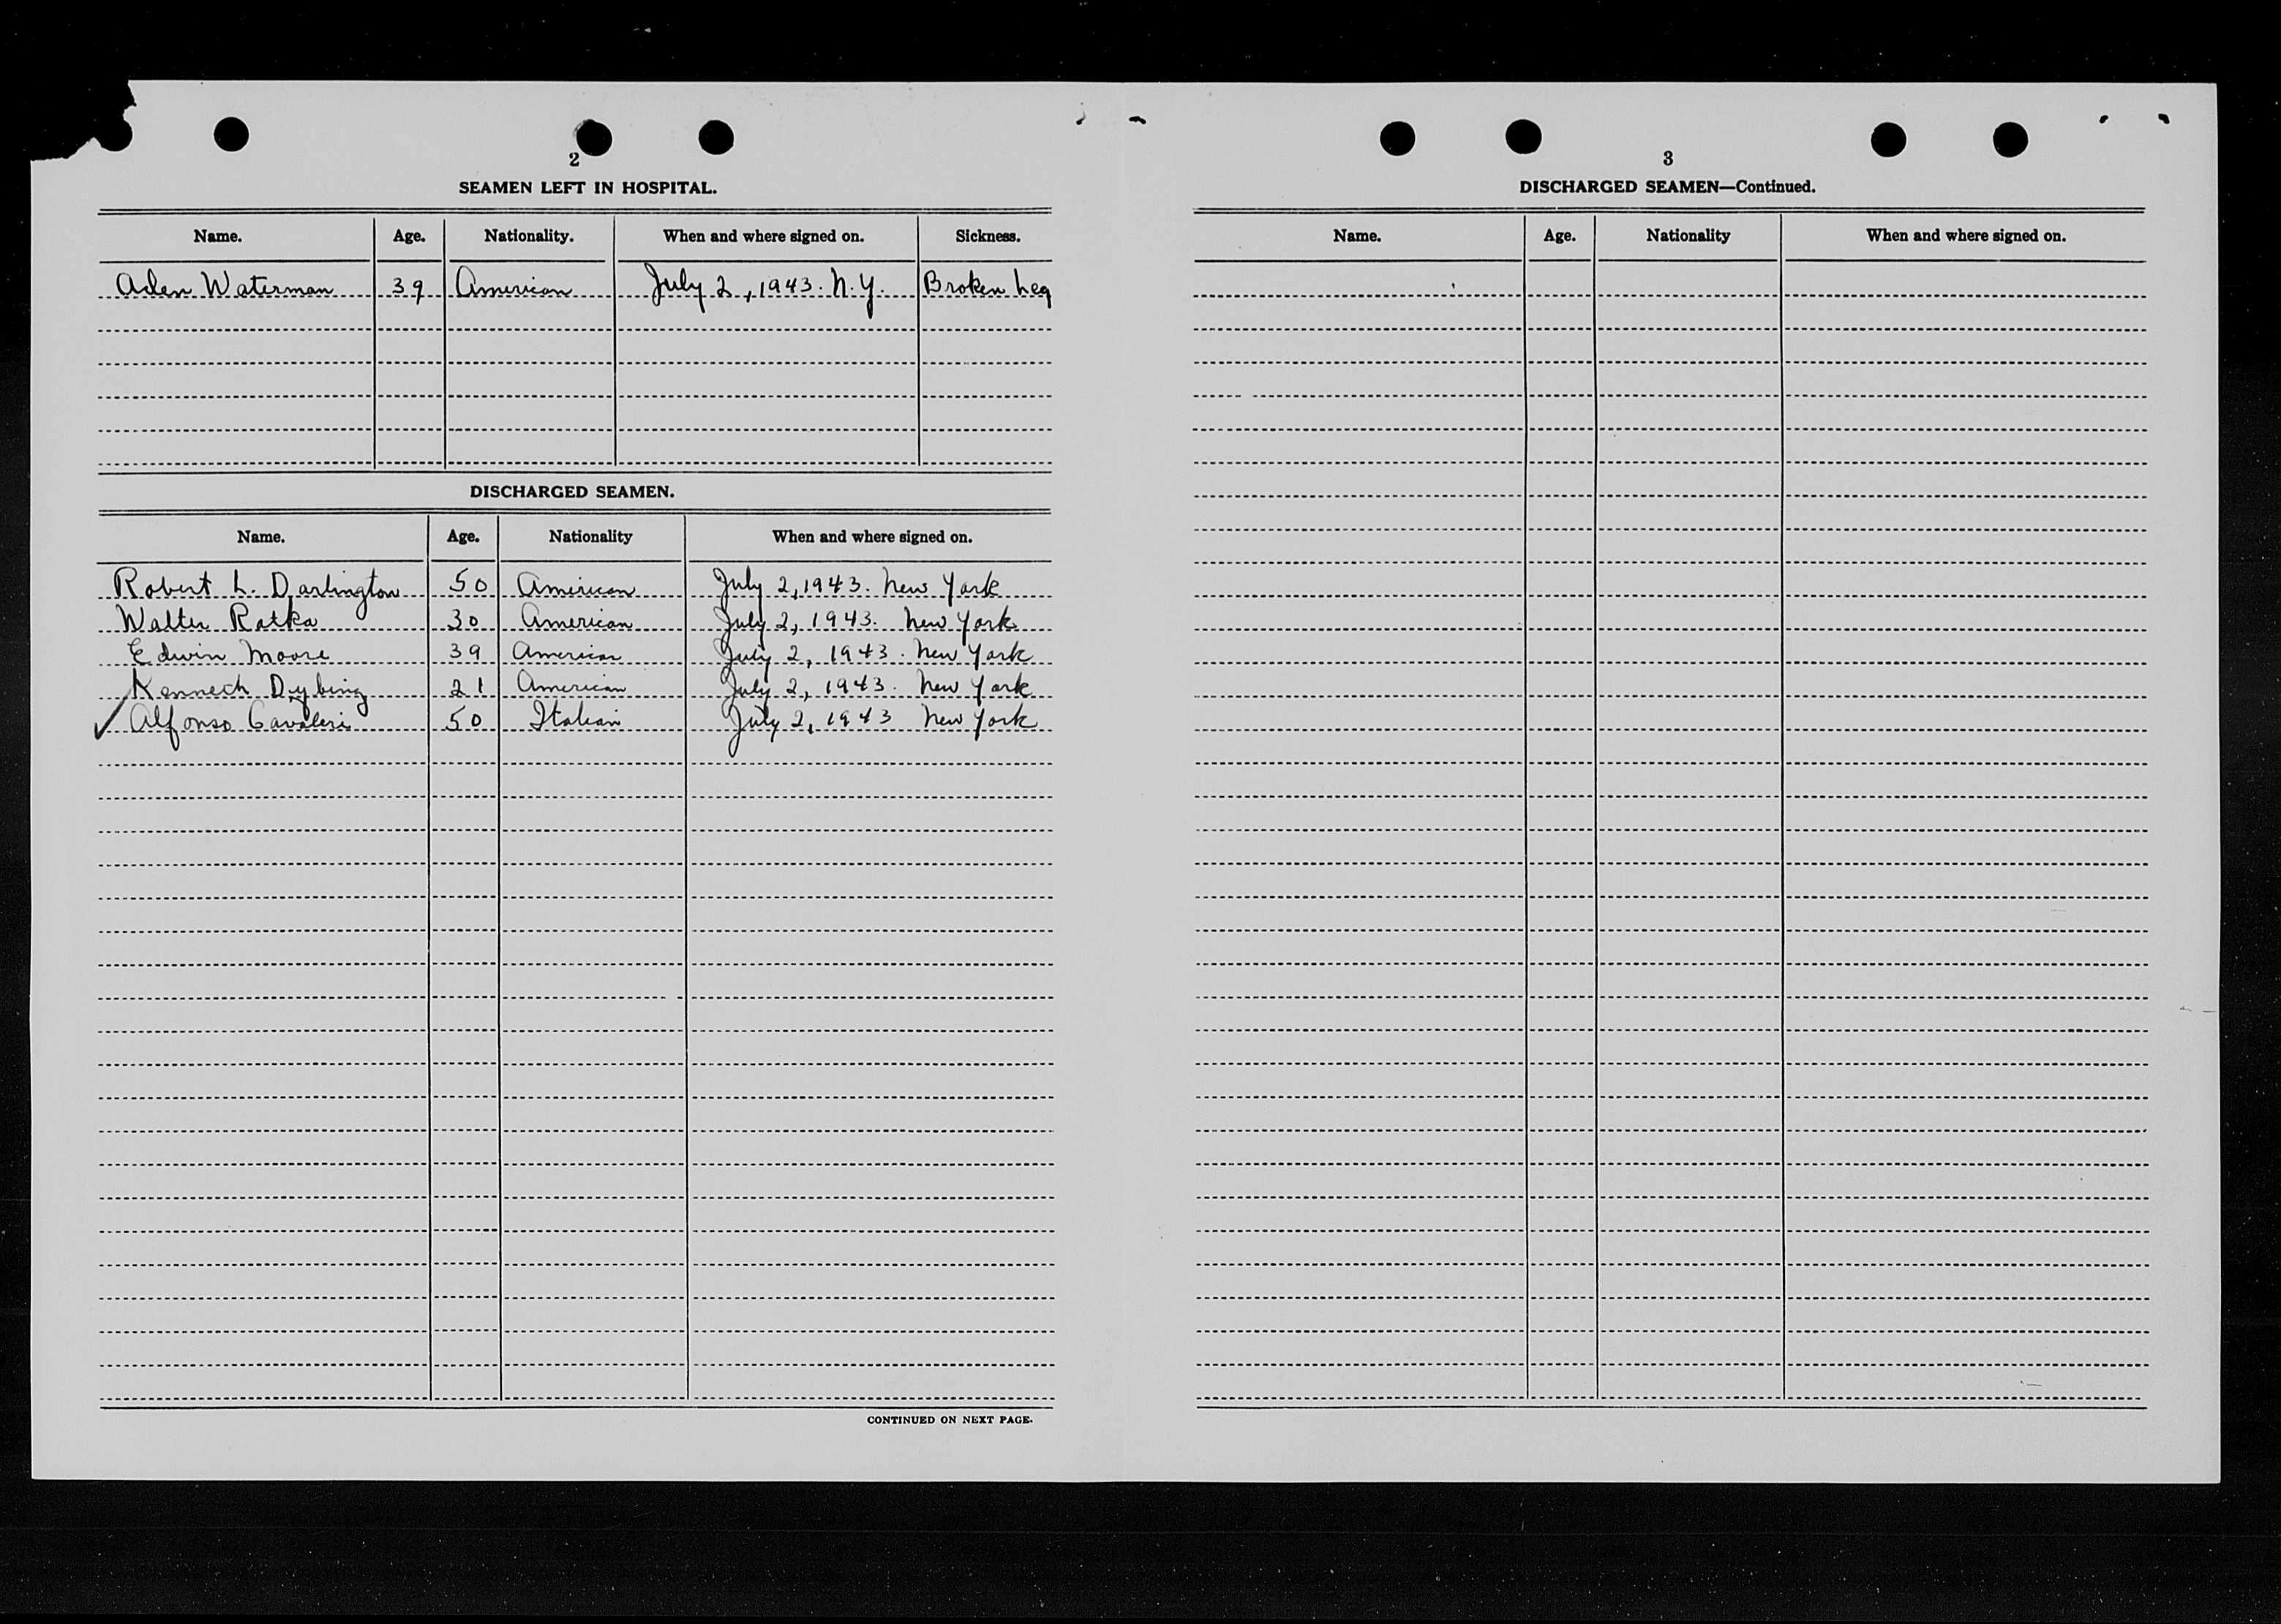 2
SEAMEN LEFT IN HOSPITAL.
Name. Age. Nationality. When and where signed on. Sickness.
Aden Waterman 39 American July 2, 1943. N.Y. Broken Leg
DISCHARGED SEAMEN.
Name. Age. Nationality When and where signed on.
Robert L. Darlington 50 American July 2, 1943. New York
Walter Ratka 30 American July 2, 1943. New York
Edwin Moore 39 American July 2, 1943. New York
Kenneth Dybing 21 American July 2, 1943. New York
✓ Alfonso Cavaleri 50 Italian July 2, 1943 New York
CONTINUED ON NEXT PAGE.
3
DISCHARGED SEAMEN—Continued.
Name. Age. Nationality When and where signed on.